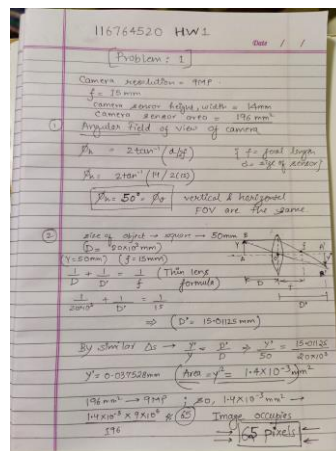 116764520 HW1
Date / /
Problem: 1
Camera resolution = 9MP.
f = 15mm
camera sensor height, width = 14mm
camera sensor area = 196 mm²
① Angular field of view of camera
Øh = 2tan⁻¹(d/2f)
f = focal length
d = size of sensor
Øh = 2tan⁻¹(14/2(15))
Øh = 50° = Øv
vertical & horizontal
FOV are the same.
② size of object → square → 50mm
(D = 20x10³mm)
(Y=50mm) (f=15mm)
1/D + 1/D' = 1/f (Thin lens
formula)
1/20x10³ + 1/D' = 1/15
⇒ (D' = 15.01125 mm)
By similar Δs → Y'/Y = D'/D ⇒ Y'/50 = 15.01126/20x10³
Y' = 0.037528mm (Area = y'² = 1.4x10⁻³ mm²
196mm² → 9MP ; so, 1.4x10⁻³mm² →
1.4x10⁻³ x 9x10⁶ / 196 ≈ 65
Image occupies
65 pixels